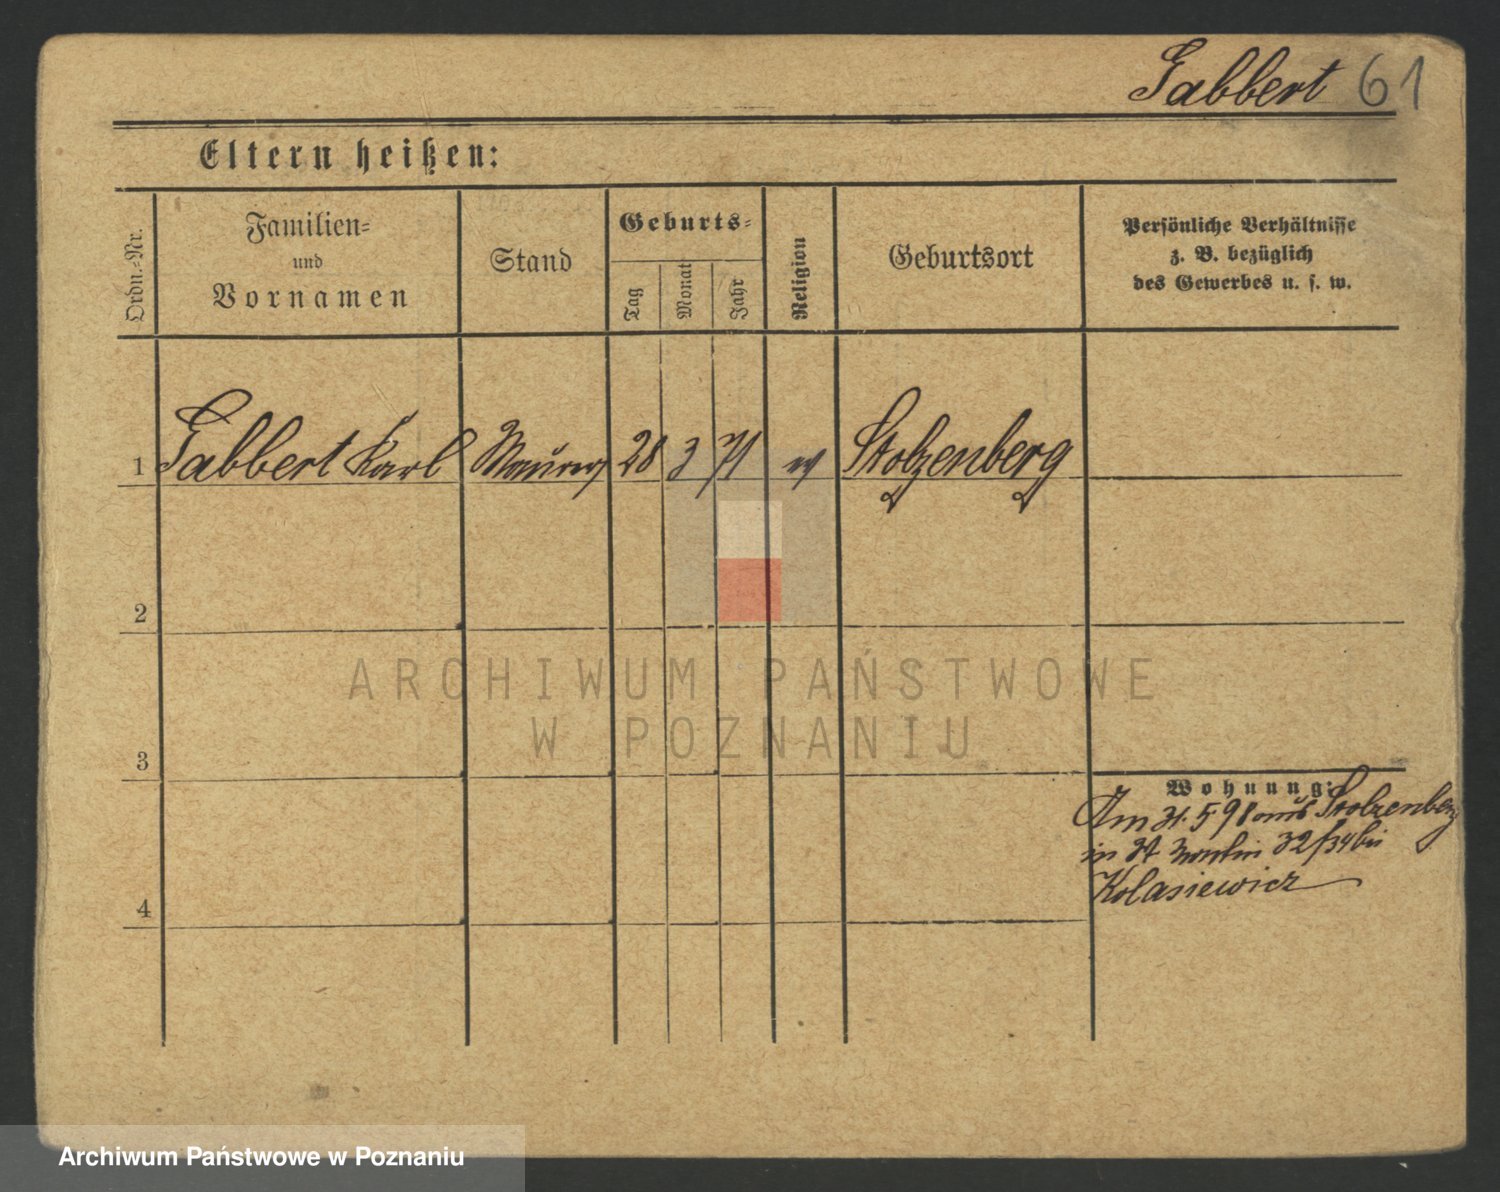 Gabbert 61
Eltern heißen:
Ordn.-Nr.
Familien-
und
Vornamen
Stand
Geburts-
Tag
Monat
Jahr
Religion
Geburtsort
Persönliche Verhältnisse
z. B. bezüglich
des Gewerbes u. s. w.
1 Gabbert Karl Maurer 28 3 71 ev Stolzenberg
2
ARCHIWUM PAŃSTWOWE
W POZNANIU
3
Wohnung:
Am 31. 5 98 aus Stolzenberg
in St 32/34 bei
Kolasiewicz
4
Archiwum Państwowe w Poznaniu